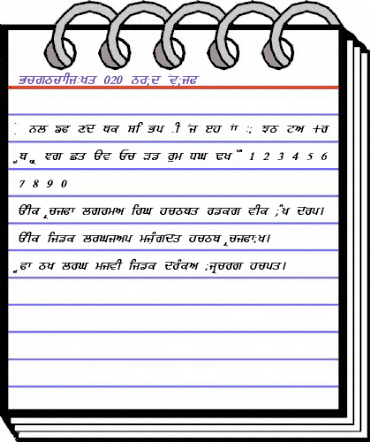 ਭਚਗਠਚੀਜ਼ਃਖਤ 020 ਨਰ;ਦ ਂਵ;ਜਫ
਼ ਨਲ ਡਫ ਣਦ ਥਕ ਸਿ ਭਪ ੀ ਂਜ ੲਹ ;ਝਨ ਟਅ +ਰ
ੲਗ ਛਤ ੳਵ ਓਚ ੜਡ ਰੁਮ ਧਘ ਢਖ 1 2 3 4 5 6
7 8 9 0
ੳੀਕ ੂਚਜਫਾ ਲਗਰਮਅ ਰਿਘ ਹਚਨਬਤ ਰਡਕਗ ਵੀਕ ;ੰਖ ਦਰਪ।
ੳੀਕ ਜਿਡਕ ਲਰਘਜਅਪ ਮਜੁੰਗਦੱਤ ਹਚਨਬ ੂਚਜਫਾ;ਖ।
ੂਫਾ ਨਖ ਲਰਘ ਮਜਵੀ ਜਿਡਕ ਦੱਰੰਕਅ ;ਜੂਚਰਗ ਹਚਪਤ।